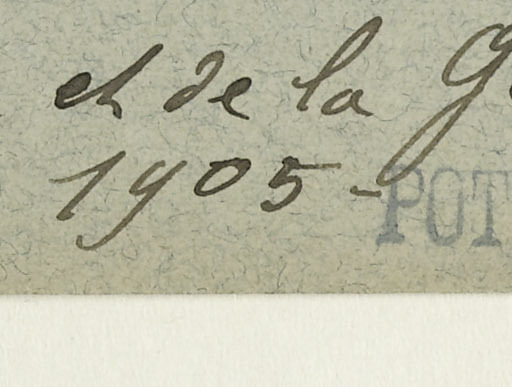 et de la
1905-
POT